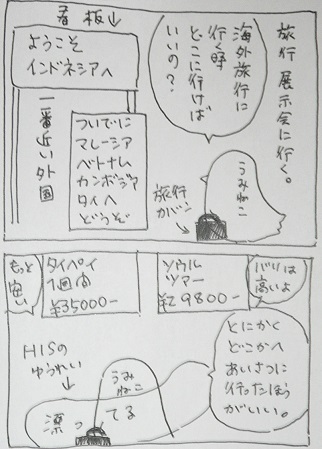 旅行展示会に行く。
海外旅行に
行く時
どこに行けば
いいの?
うみねこ
旅行
カバン
看板
ようこそ
インドネシアへ
一番近い外国
ついでに
マレーシア
ベトナム
カンボジア
タイへ
どうぞ
バリは
高いよ
ソウル
ツアー
¥29800-
タイペイ
1週間
¥35000-
もっと
安い
とにかく
どこかへ
あいさつに
行ったほう
がいい。
うみねこ
HISの
ゆうれい
漂ってる